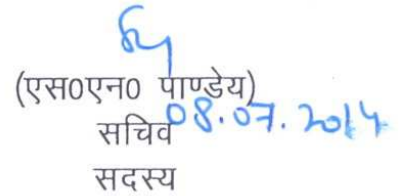 (एस0एन0 पाण्डेय)
सचिव 08.07.2014
सदस्य